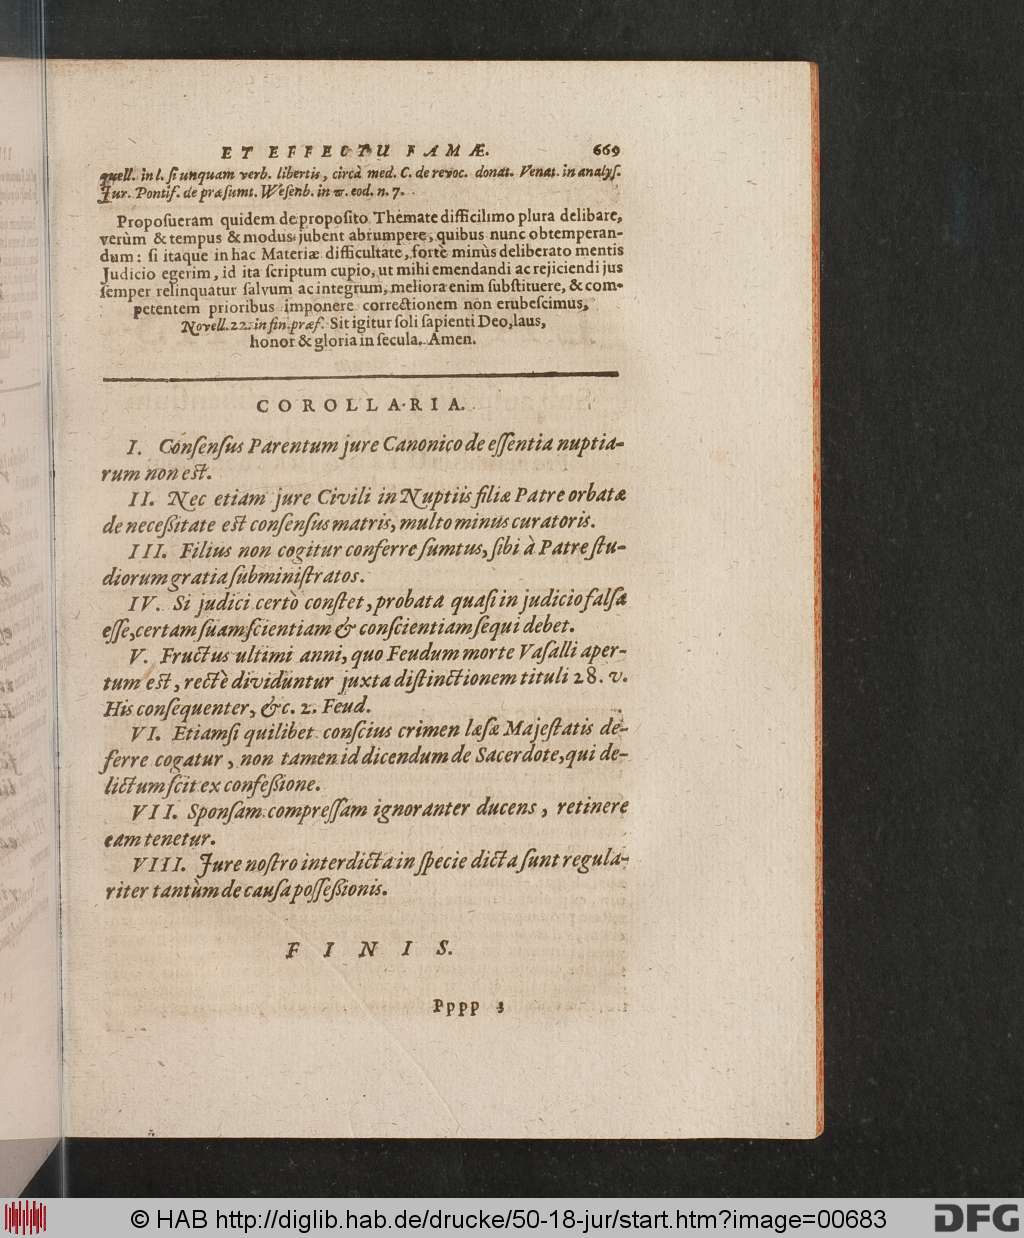 ET EFFECTU FAMÆ. 669
quell. in l. si unquam verb. libertis, circà med. C. de revoc. donat. Venat. in analys.
Jur. Pontif. de præsumt. Wesenb. in π. eod. n. 7.
Proposueram quidem de proposito Themate difficilimo plura delibare,
verùm & tempus & modus jubent abrumpere, quibus nunc obtemperan-
dum: si itaque in hac Materiæ difficultate, forte minùs deliberato mentis
Judicio egerim, id ita scriptum cupio, ut mihi emendandi ac rejiciendi jus
semper relinquatur salvum ac integrum, meliora enim substituere, & com-
petentem prioribus imponere correctionem non erubescimus,
Novell. 22. in fin. præf. Sit igitur soli sapienti Deo, laus,
honor & gloria in secula, Amen.
COROLLARIA.
I. Consensus Parentum jure Canonico de essentia nuptia-
rum non est.
II. Nec etiam jure Civili in Nuptiis filiæ Patre orbatæ
de necessitate est consensus matris, multo minus curatoris.
III. Filius non cogitur conferre sumtus, sibi à Patre stu-
diorum gratia subministratos.
IV. Si judici certò constet, probata quasi in judicio falsa
esse, certam suam scientiam & conscientiam sequi debet.
V. Fructus ultimi anni, quo Feudum morte Vasalli aper-
tum est, rectè dividuntur juxta distinctionem tituli 28. v.
His consequenter, &c. 2. Feud.
VI. Etiamsi quilibet conscius crimen læsæ Majestatis de-
ferre cogatur, non tamen id dicendum de Sacerdote, qui de-
lictum scit ex confessione.
VII. Sponsam compressam ignoranter ducens, retinere
eam tenetur.
VIII. Jure nostro interdicta in specie dicta sunt regula-
riter tantùm de causa possessionis.
FINIS.
Pppp 3
© HAB http://diglib.hab.de/drucke/50-18-jur/start.htm?image=00683
DFG